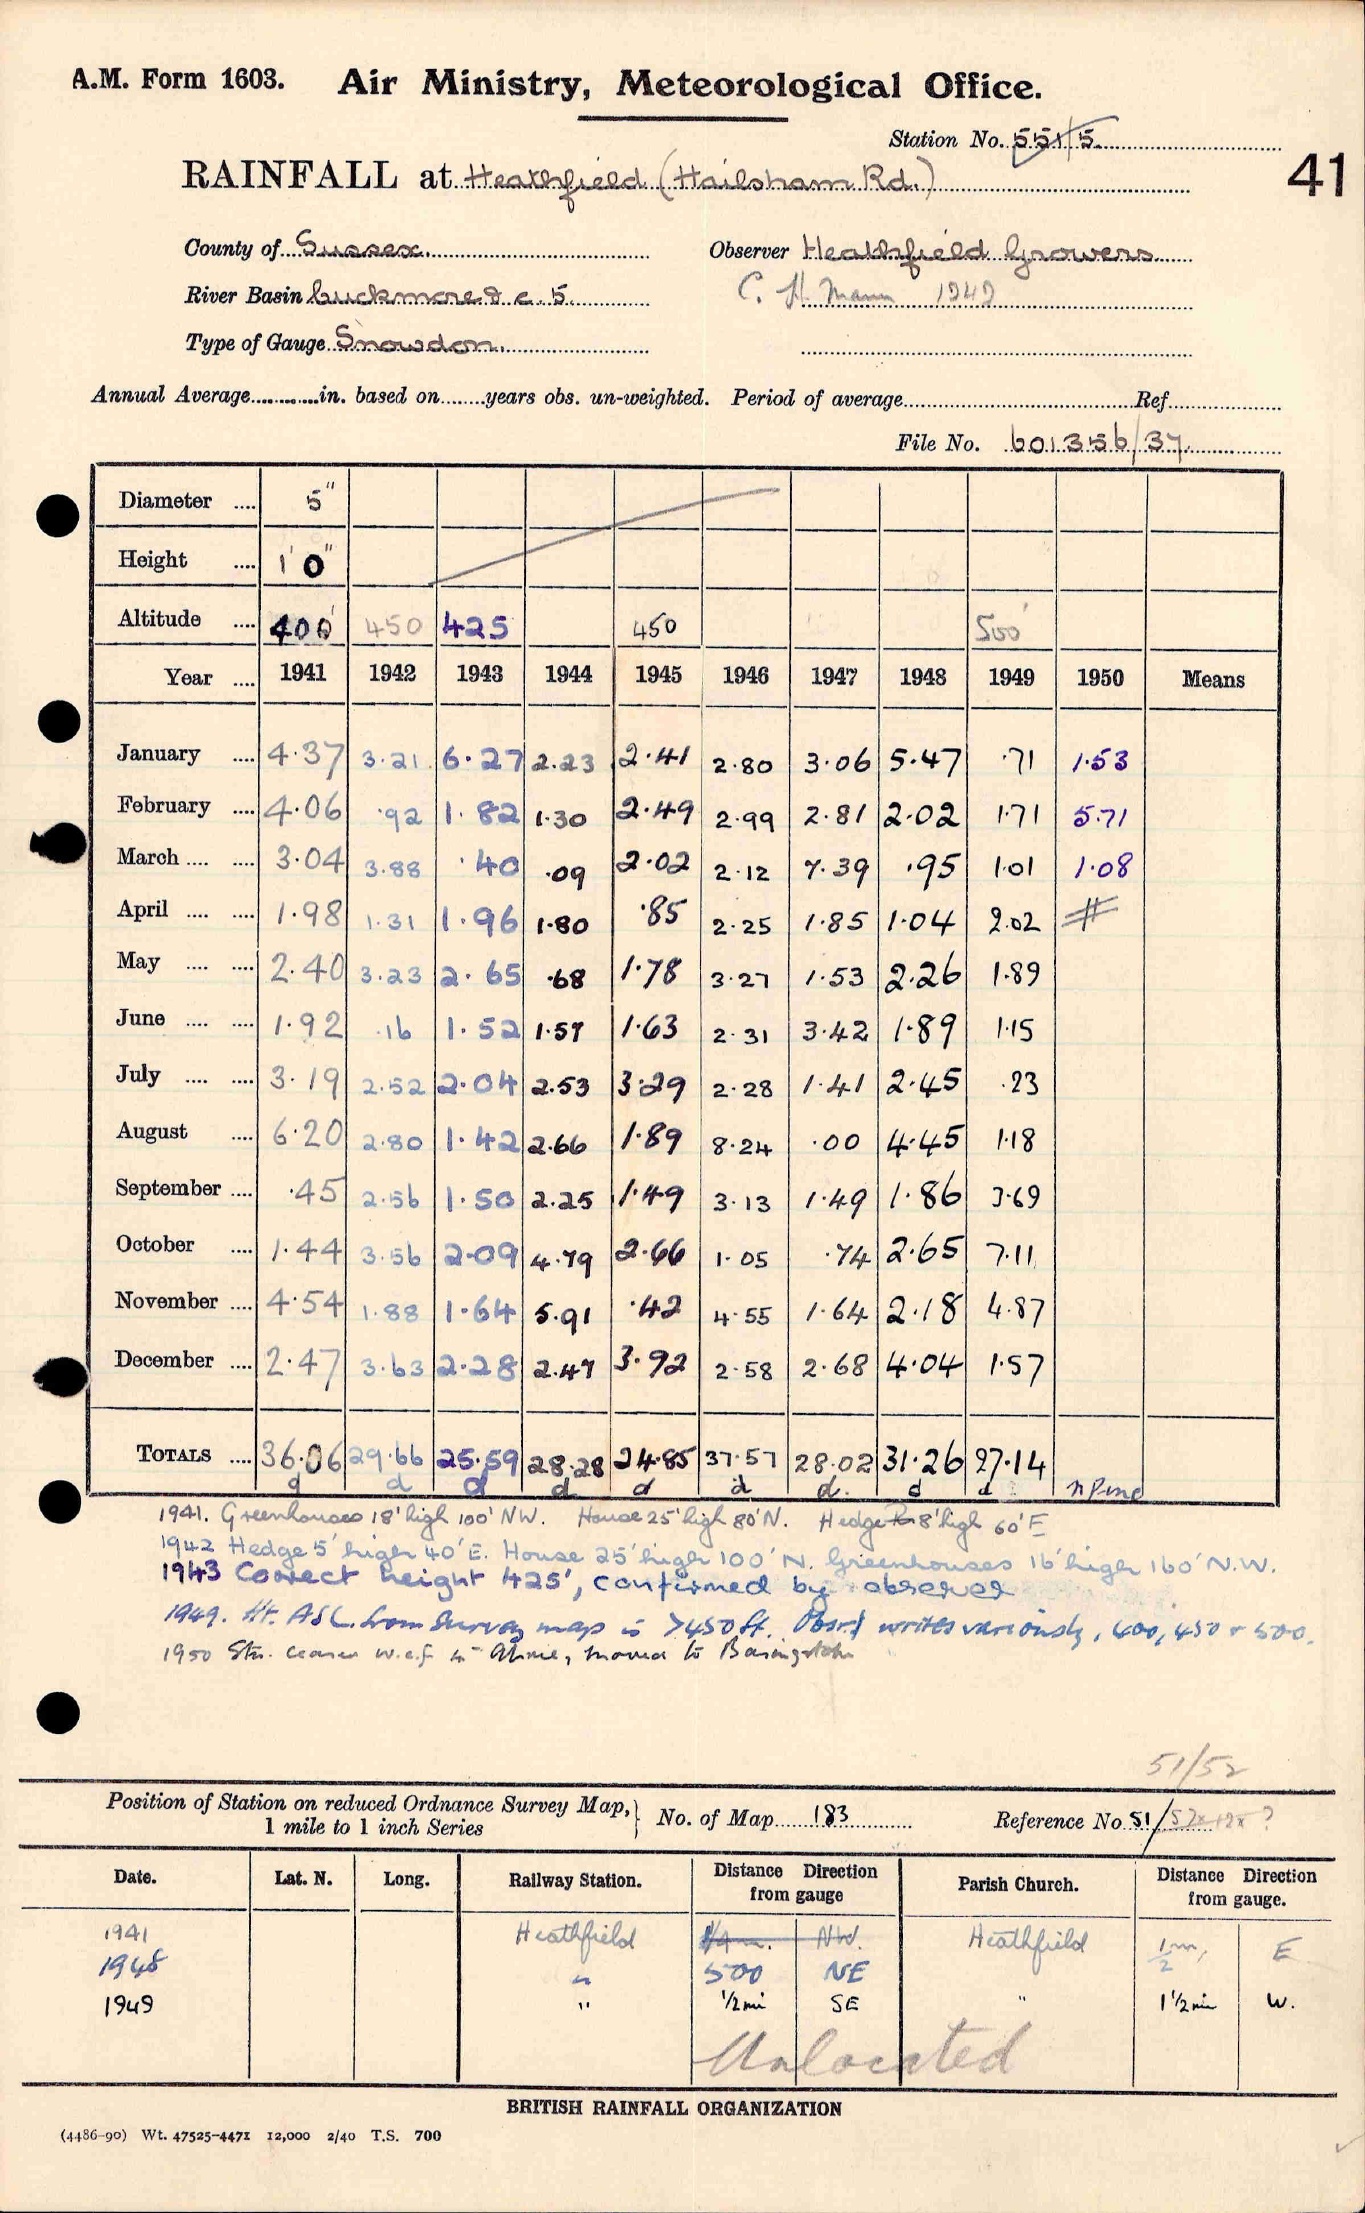 A.M. Form 1603. Air Ministry, Meteorological Office.
Station No. 551/5.
41
RAINFALL at Heathfield (Hailsham Rd.)
County of Sussex. Observer Heathfield Growers
River Basin Cuckmere & c. 5. C. H. Mann 1949
Type of Gauge Snowdon.
Annual Average in. based on years obs. un-weighted. Period of average Ref
File No. 601356/37
Diameter 5"
Height 1' 0"
Altitude 400' 450 425 450 500'
Year 1941 1942 1943 1944 1945 1946 1947 1948 1949 1950 Means
January 4.37 3.21 6.27 2.23 2.41 2.80 3.06 5.47 .71 1.53
February 4.06 .92 1.82 1.30 2.49 2.99 2.81 2.02 1.71 5.71
March 3.04 3.88 .40 .09 2.02 2.12 7.39 .95 1.01 1.08
April 1.98 1.31 1.96 1.80 .85 2.25 1.85 1.04 2.02
May 2.40 3.23 2.65 .68 1.78 3.27 1.53 2.26 1.89
June 1.92 .16 1.52 1.57 1.63 2.31 3.42 1.89 1.15
July 3.19 2.52 2.04 2.53 3.29 2.28 1.41 2.45 .23
August 6.20 2.80 1.42 2.66 1.89 8.24 .00 4.45 1.18
September .45 2.56 1.50 2.25 1.49 3.13 1.49 1.86 3.69
October 1.44 3.56 2.09 4.79 2.66 1.05 .74 2.65 7.11
November 4.54 1.88 1.64 5.91 .42 4.55 1.64 2.18 4.87
December 2.47 3.63 2.28 2.47 3.92 2.58 2.68 4.04 1.57
TOTALS 36.06 29.66 25.59 28.28 24.85 37.57 28.02 31.26 27.14
d d d d d d d d
1941. Greenhouses 18' high 100' NW. House 25' high 80' N. Hedge 8' high 60' E
1942 Hedge 5' high 40' E. House 25' high 100' N. Greenhouses 16' high 160' N.W.
1943 Correct height 425', confirmed by observer
1949. Ht. ASL from Survey map is >450 ft. Obsr writes variously, 400, 450 + 500.
1950 Stn. ceases w.e.f. moved to Basingstoke
51/52
Position of Station on reduced Ordnance Survey Map, No. of Map 183 Reference No 51/
1 mile to 1 inch Series
Date. Lat. N. Long. Railway Station. Distance Direction from gauge Parish Church. Distance Direction from gauge.
1941 Heathfield 1/4 m. NW. Heathfield 1/2 m, E
1948 " 500 NE
1949 " 1/2 mi SE " 1 1/2 mi W.
Unlocated
BRITISH RAINFALL ORGANIZATION
(4486-90) Wt. 47525-4471 12,000 2/40 T.S. 700